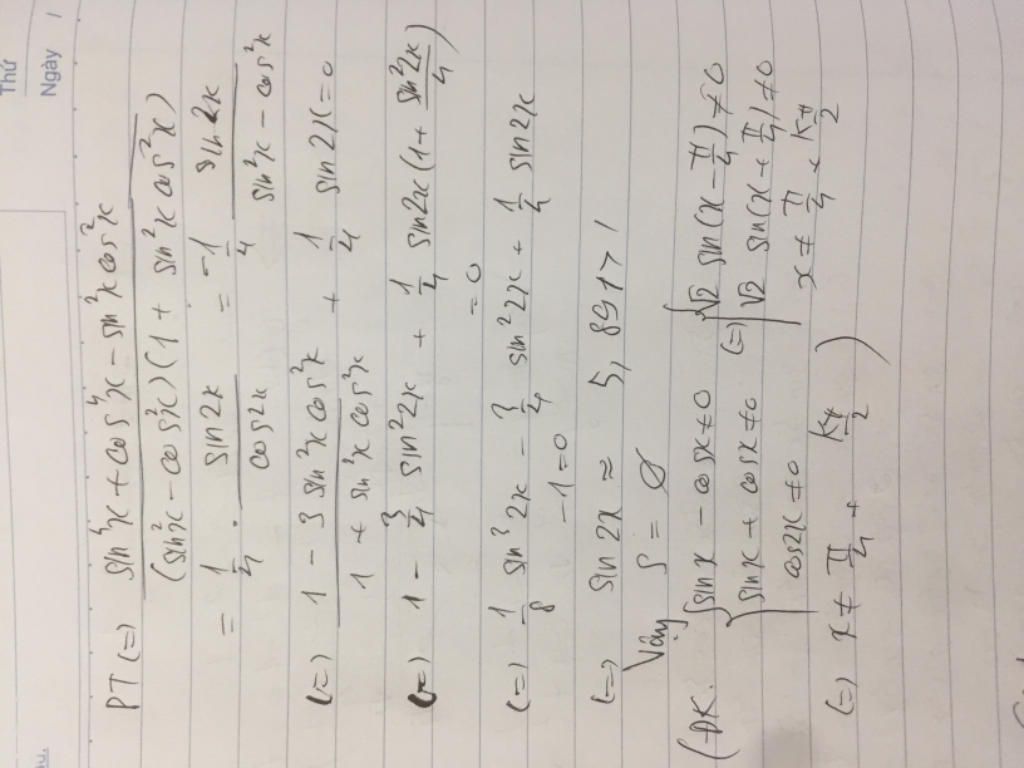 Thứ
Ngày /
PT (=) sin⁴x + cos⁴x - sin²x cos²x / (sin²x - cos²x)(1 + sin²x cos²x)
= 1/4 . sin2x / cos2x = -1/4 sin2x / sin²x - cos²x
(=) 1 - 3 sin²x cos²x / 1 + sin²x cos²x + 1/4 sin2x = 0
(=) 1 - 3/4 sin²2x + 1/4 sin2x (1 + sin²2x/4) = 0
(=) 1/8 sin³2x - 3/4 sin²2x + 1/4 sin2x - 1 = 0
(=) sin2x ≈ 5,8917 > 1
Vậy S = ∅
(ĐK. { sinx - cosx ≠ 0 (=) { √2 sin(x - π/4) ≠ 0
sinx + cosx ≠ 0 √2 sin(x + π/4) ≠ 0
cos2x ≠ 0 x ≠ π/4 + kπ/2
(=) x ≠ π/4 + kπ/2 )